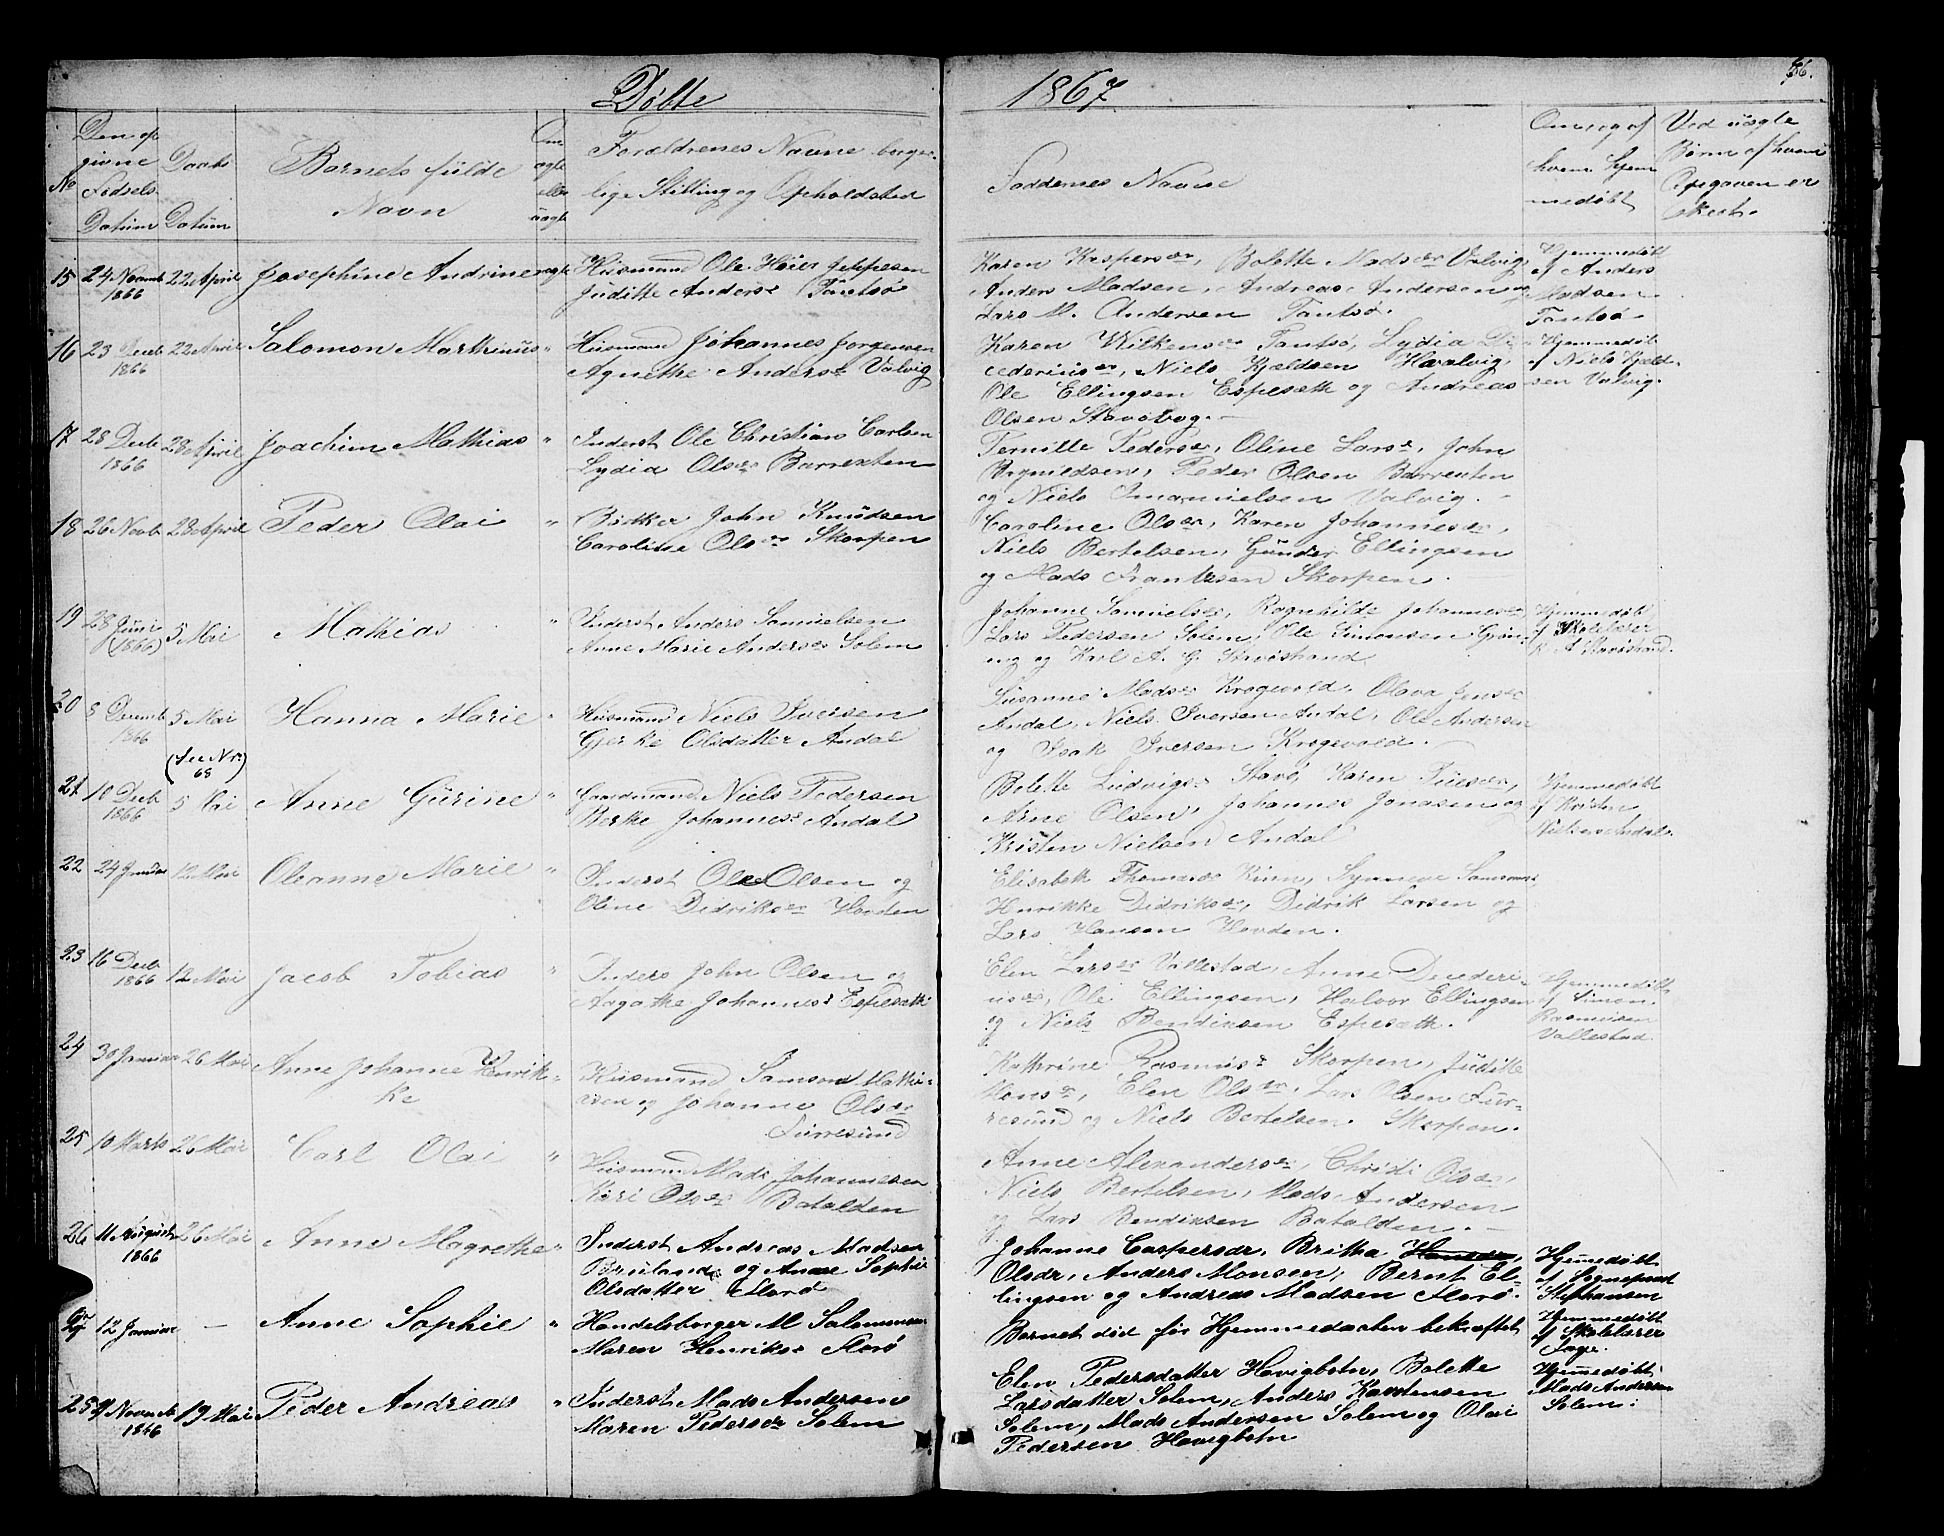 Døbte
1867
No
Den op
givne
Fødsels
Datum
Daabs
Datum
Barnets fulde
Navn
Om
ægte
eller
uægte
Forældrenes Navne borger-
lige Stilling og Opholdsted
Faddernes Navne
Om og af
hvem hjem
medøbt
Ved uægte
Børn af hvem
Opgaven er
skeet.
15 24 Novemb 1866 22 April Josephine Andrine ægte Husmand Ole Høier Jeppesen
Juditte Anders Tantsø
Karen Kaspersdr, Bolette Madsdr Valvig,
Anders Madsen, Andreas Andersen og
Lars M. Andersen Tantsø.
Hjemmedøbt
af Anders
Madsen
Tantsø
16 23 Decb 1866 22 April Salomon Marthinus " Husmand Johannes Jørgensen
Agnethe Anders Valvig
Karen Wilkens Tantsø, Lydia Di-
ederiusdr, Niels Kjeldsen Havalvig,
Ole Ellingsen Espeseth og Andreas
Olsen Stavøbog.
Hjemmedøbt
af Niels Kjeld-
sen Valvig.
17 28 Decb 1866 28 April Joachim Mathias " Inderst Ole Christian Carlsen
Lydia Olsdr Barrexten
Pernille Pedersdr, Oline Larsd, John
Brynildsen, Peder Olsen Barrexten
og Niels Imanuelsen Valvig.
18 26 Novb 28 April Peder Olai " Bødker John Knudsen
Caroline Olsdr Skorpen
Caroline Olsdr, Karen Johannesdr,
Niels Bertelsen, Gunder Ellingsen
og Mads Frantzsen Skorpen.
19 28 Juni (1866) 5 Mai Mathias " Inderst Anders Samuelsen
Anne Marie Andersdr Solem
Johanne Samuelsdr, Ragnhilde Johannesdr,
Lars Pedersen Solem, Ole Simonsen Grøn-
ing og Karl A. G. Stavøstrand
Hjemmedøbt
af Skolelærer
K. A. Stavøstrand.
20 8 Decemb 1866 5 Mai Hanna Marie " Husmand Niels Iversen
Gjerke Olsdatter Andal
Susanne Madsdr Krogevold, Olava Jensdr
Andal, Niels Iversen Andal, Ole Andersen
og Isak Iversen Krogevold.
(See Nr
68)
21 10 Decb 1866 5 Mai Anne Gurine " Gaardmand Niels Pedersen
Berthe Johannesd Andal
Bolette Ludvigsd Stavø, Karen
Arne Olsen, Johannes Jonasen og
Kristen Nielsen Andal
Hjemmedøbt
af Kristen
Nielsen Andal.
22 24 Januar 12 Mai Oleanne Marie " Inderst Ole Olsen og
Oline Didriksdr Hovden
Elisabeth Thomasdr Kinn, Synneve Samsons
Henrikke Didriksdr, Didrik Larsen og
Lars Hansen Hovden.
23 16 Decb 1866 12 Mai Jacob Tobias " Inders John Olsen og
Aagathe Johannesd Espeseth
Elen Larsdr Vallestad, Anne Diederi-
usdr, Ole Ellingsen, Halvor Ellingsen
og Niels Bendixsen Espeseth.
Hjemmedøbt
af Simon
Rasmusen
Vallestad.
24 30 Januar 26 Mai Anne Johanne Henrik-
ke " Husmand Samson Mathi-
asen og Johanne Olsdr
Furresund
Kathrine Rasmusd Skorpen, Juditte
Monsdr, Elen Olsdr, Lars Olsen Fur-
resund og Niels Bertelsen Skorpen.
25 10 Marts 26 Mai Carl Olai " Husmand Mads Johannesen
Kari Olsdr Batalden
Anne Alexandersdr, Christi Olsdr,
Niels Bertelsen, Mads Andersen
og Lars Bendixsen Batalden.
26 11 August 1866 26 Mai Anne Magrethe " Inderst Andreas Madsen
Bruland og Anne Sophie
Olsdatter Florø
Johanne Caspersdr, Britha Hansdr,
Olsdr, Anders Monsen, Bernt El-
lingsen og Andreas Madsen Florø.
Hjemmedøbt
af Sognepræst
Stephansen
27 12 Januar — Anne Sophie " Handelsborger M Salomonsen
Maren Henriksd Florø
Barnet død før Hjemmedaaben bekræftet
Hjemmedøbt
af Skolelærer
28 9 Novemb 1866 19 Mai Peder Andreas " Inderst Mads Andersen
Maren Pedersdr Solem
Elen Pedersdatter Havigbotn, Bolette
Larsdatter Solem, Anders Karstensen
Solem, Mads Andersen Solem og Olai
Pedersen Havigbotn
Hjemmedøbt
Mads Andersen
Solem.